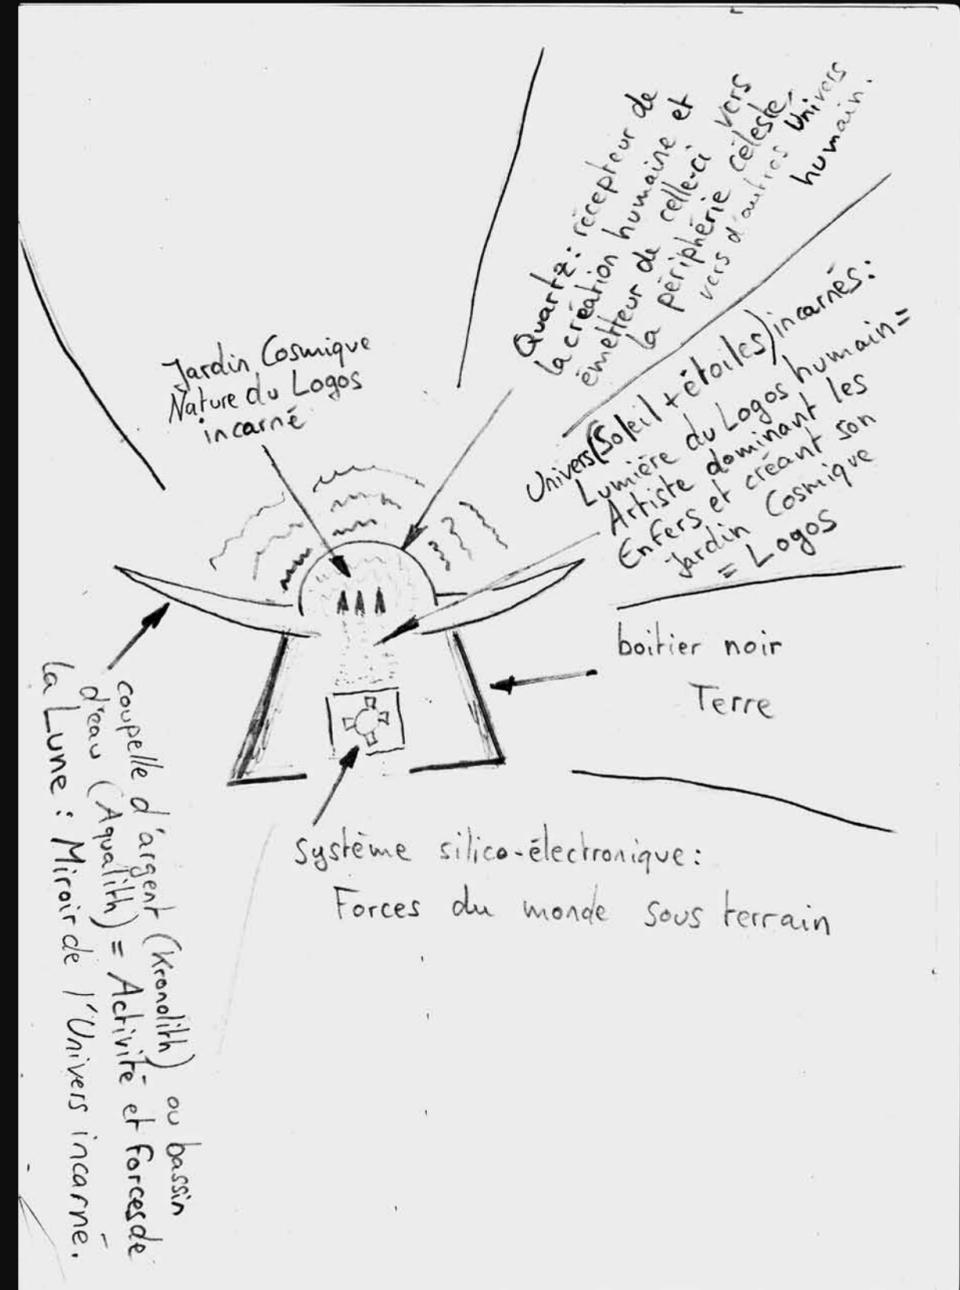 Quartz : récepteur de
la création humaine et
émetteur de celle-ci vers
la périphérie céleste,
vers d'autres Univers
humain.
Jardin Cosmique
Nature du Logos
incarné
Univers (Soleil + étoiles) incarnés :
Lumière du Logos humain =
Artiste dominant les
Enfers et créant son
Jardin Cosmique
= Logos
boitier noir
Terre
système silico-électronique :
Forces du monde sous terrain
coupelle d'argent (Kronolith) ou bassin
d'eau (Aqualith) = Activité et forces de
la Lune : Miroir de l'Univers incarné.